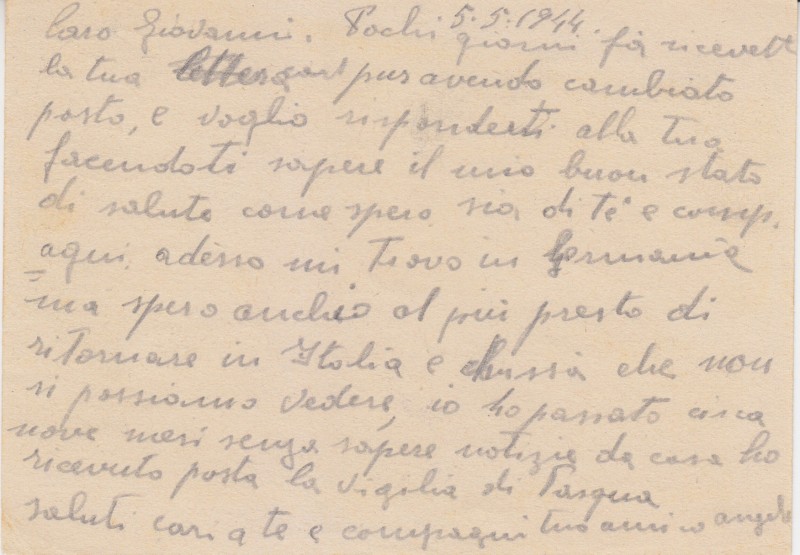 5.5.1944.
Caro Giovanni. Pochi giorni fà ricevetti
la tua pur avendo cambiato
posto, e voglio risponderti alla tua
facendoti sapere il mio buon stato
di salute come spero sia di te e comp.
agni. adesso mi trovo in Germania
ma spero anchio al più presto di
ritornare in Italia e chissà che non
si possiamo vedere, io ho passato circa
nove mesi senza sapere notizie da casa ho
ricevuto posta la vigilia di Pasqua
saluti cari a te e compagni tuo amico angelo